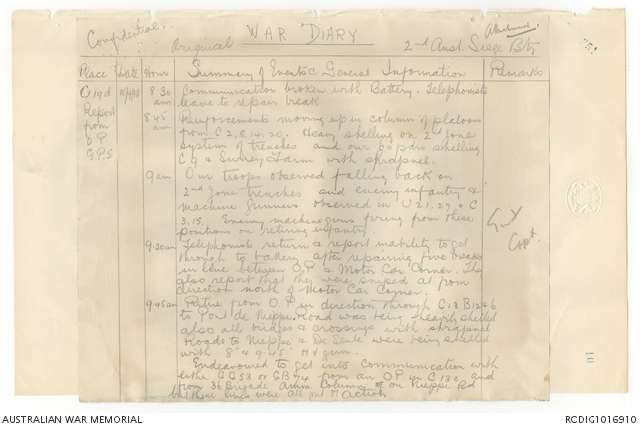 Confidential.
Original
WAR DIARY
2nd Aust. Siege Bty
Place
Date
Hour
Summary of Events & General Information
Remarks
C19d
Report
from
O P
G.P.S
8.30
am
Communication broken with Battery. Telephonists
leave to repair break
8.45
am
Reinforcements moving up in column of platoons
from C 2, 8, 14, 20. Heavy shelling on 2nd zone
system of trenches and our shelling
C 9 & Surrey Farm with shrapnel.
9 am
Our troops observed falling back on
2nd zone trenches and enemy infantry &
machine gunners observed in U 21, 27 & C
3, 15. Enemy machine guns firing from these
positions on retiring infantry
9.30am
Telephonists return & report inability to get
through to battery after repairing five breaks
in line between O.P. & Motor Car Corner. They
also report that they were sniped at from
direction north of Motor Car Corner.
9.45am
Retire from O.P in direction through C18 B 12 & 6
to Pont de Nieppe. Road was being heavily shelled
also all bridges & crossings with shrapnel
Roads to Nieppe & De Seule were being shelled
with 8" & 9.45" H V gun.
Endeavoured to get into communication with
either G G 53 or G B 74 from an O P in C 13 c, and
from 36 Brigade Amm Column on Nieppe Rd
but these lines were all out of action
Capt
AUSTRALIAN WAR MEMORIAL
RCDIG1016910